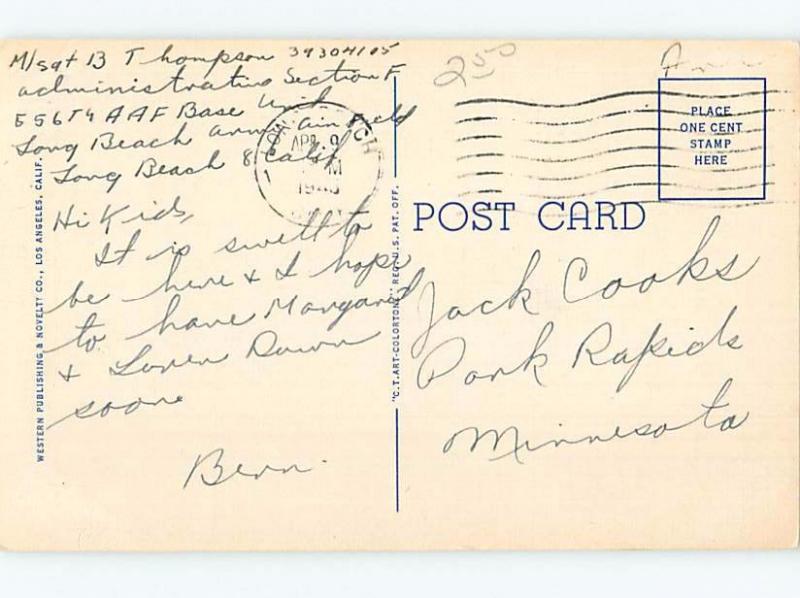 M/Sgt B Thompson 39304105
administrative Section F
556TH AAF Base Unit
Long Beach army air Field
Long Beach 8 Calif
Hi Kids,
It is swell to
be here & I hope
to have Margaret
& Loren Dawn
soon
Benn.
WESTERN PUBLISHING & NOVELTY CO., LOS ANGELES, CALIF.
"C.T. ART-COLORTONE" REG. U.S. PAT. OFF.
APR 9
PM
2.50
PLACE
ONE CENT
STAMP
HERE
POST CARD
Jack Cooks
Park Rapids
Minnesota